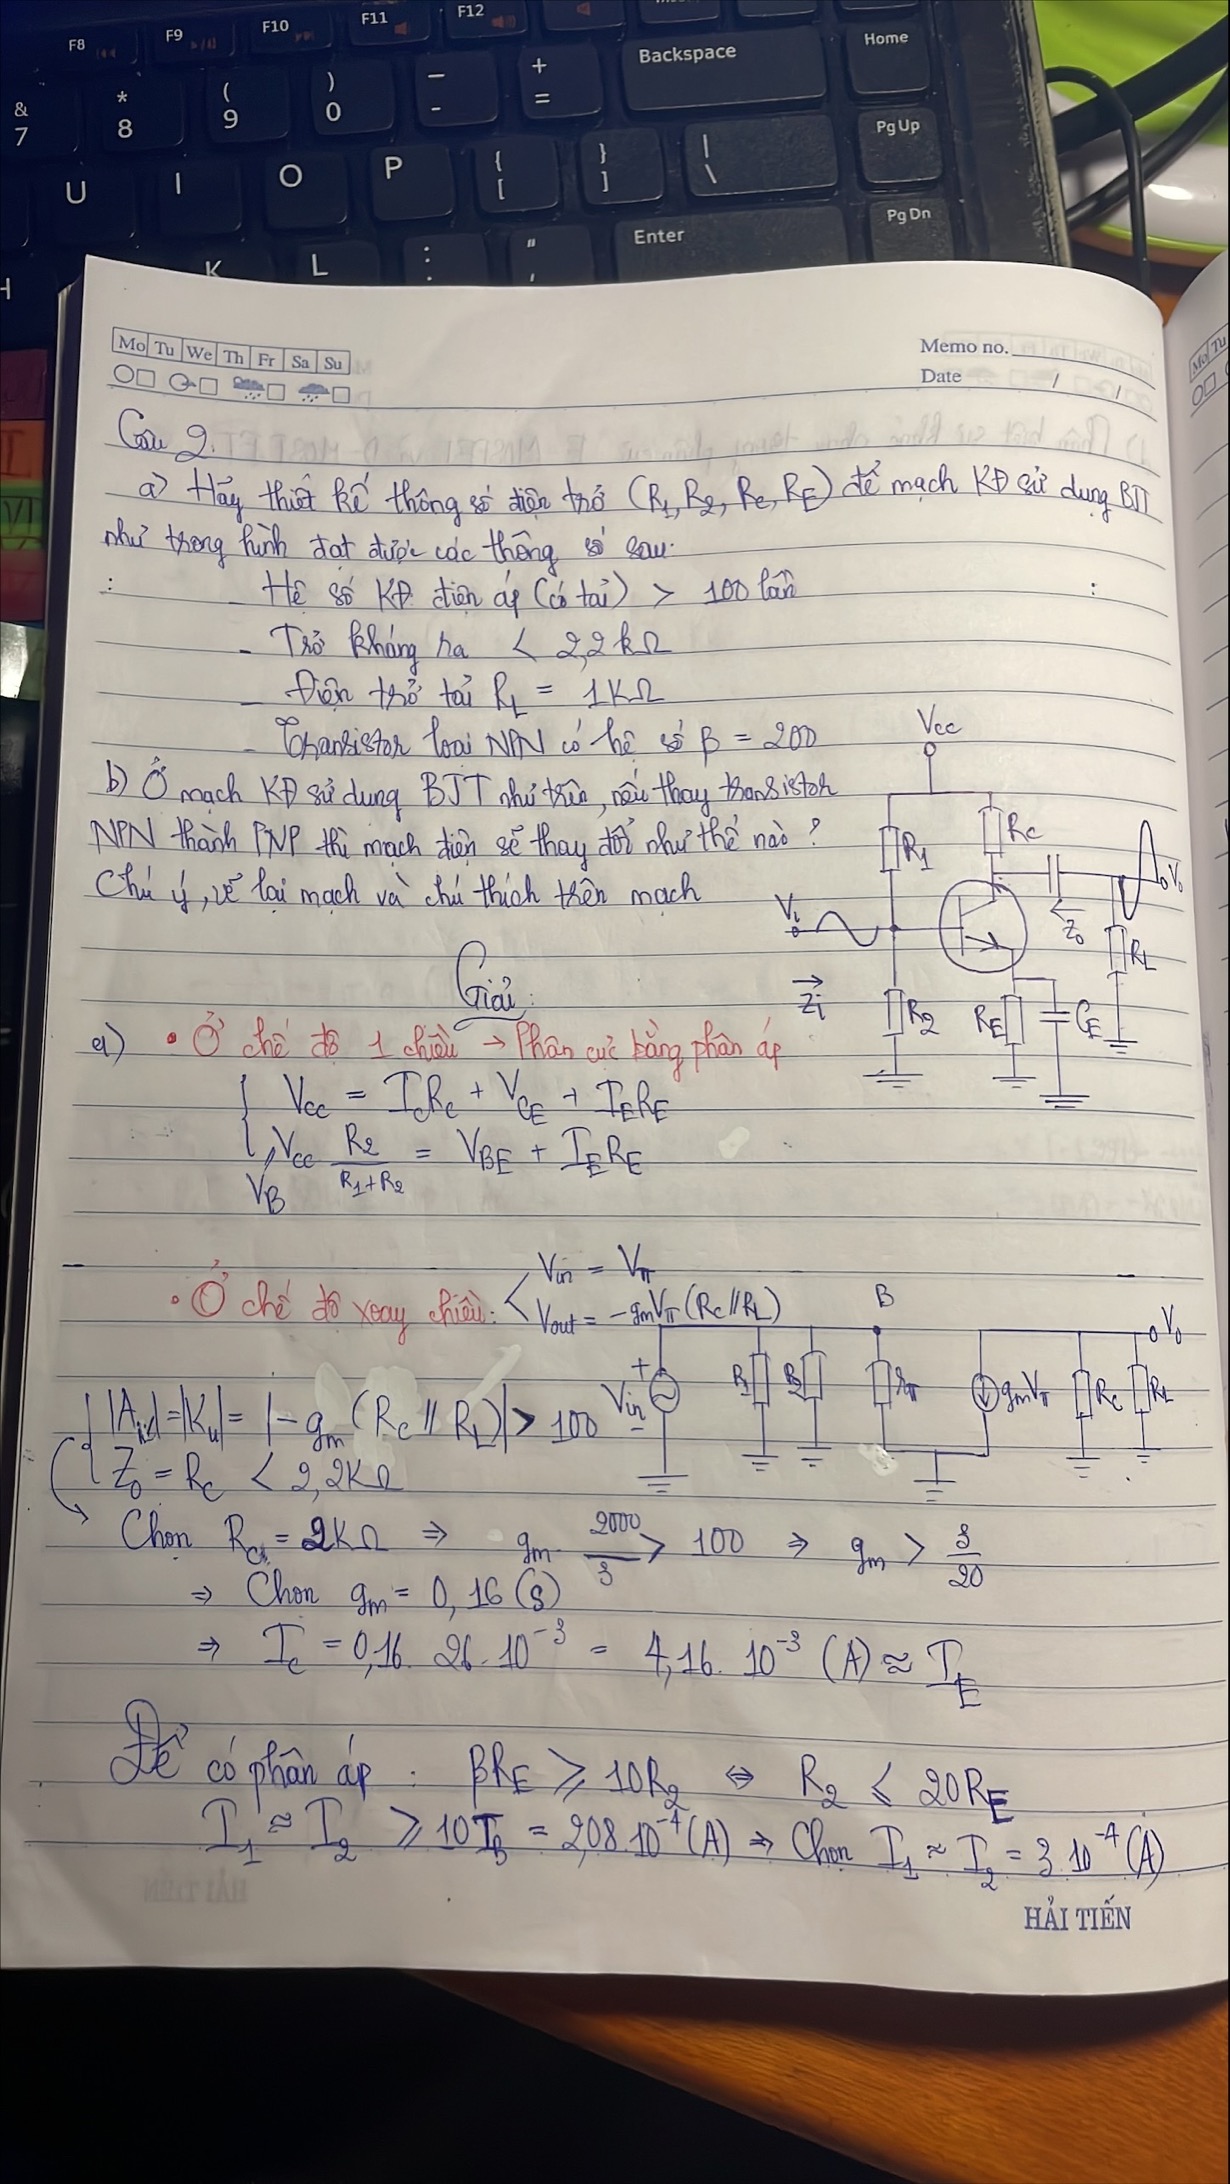 F8 F9 F10 F11 F12
& 7 * 8 ( 9 ) 0 _ - + = Backspace Home
U I O P { [ } ] | \ PgUp
K L : ; " ' Enter PgDn
Mo Tu We Th Fr Sa Su
Memo no.
Date / /
Câu 2.
a) Hãy thiết kế thông số điện trở (R₁, R₂, Rc, RE) để mạch KĐ sử dụng BJT
như trong hình đạt được các thông số sau:
- Hệ số KĐ điện áp (có tải) > 100 lần
- Trở kháng ra < 2,2kΩ
- Điện trở tải RL = 1KΩ
- Transistor loại NPN có hệ số β = 200
b) Ở mạch KĐ sử dụng BJT như trên, nếu thay transistor
NPN thành PNP thì mạch điện sẽ thay đổi như thế nào?
Chú ý, vẽ lại mạch và chú thích trên mạch
Vcc
R₁ Rc
Vi Vo
Zo RL
Zi R₂ RE CE
Giải:
a) • Ở chế độ 1 chiều → Phân cực bằng phân áp
Vcc = IcRc + VCE + IERE
Vcc R₂/(R₁+R₂) = VBE + IERE
VB
• Ở chế độ xoay chiều: Vin = Vπ
Vout = -gmVπ (Rc//RL)
B Vo
+ Vin - R₁ R₂ rπ gmVπ Rc RL
|Au|=|Ku| = |-gm (Rc // RL)| > 100
Zo = Rc < 2,2KΩ
Chọn Rc = 2KΩ ⇒ gm 2000/3 > 100 ⇒ gm > 3/20
⇒ Chọn gm = 0,16 (S)
⇒ Ic = 0,16. 26. 10⁻³ = 4,16. 10⁻³ (A) ≈ IE
Để có phân áp : βRE ≥ 10R₂ ⇔ R₂ ≤ 20RE
I₁ ≈ I₂ ≥ 10IB = 2,08.10⁻⁴(A) ⇒ Chọn I₁ ≈ I₂ = 3.10⁻⁴(A)
HẢI TIẾN